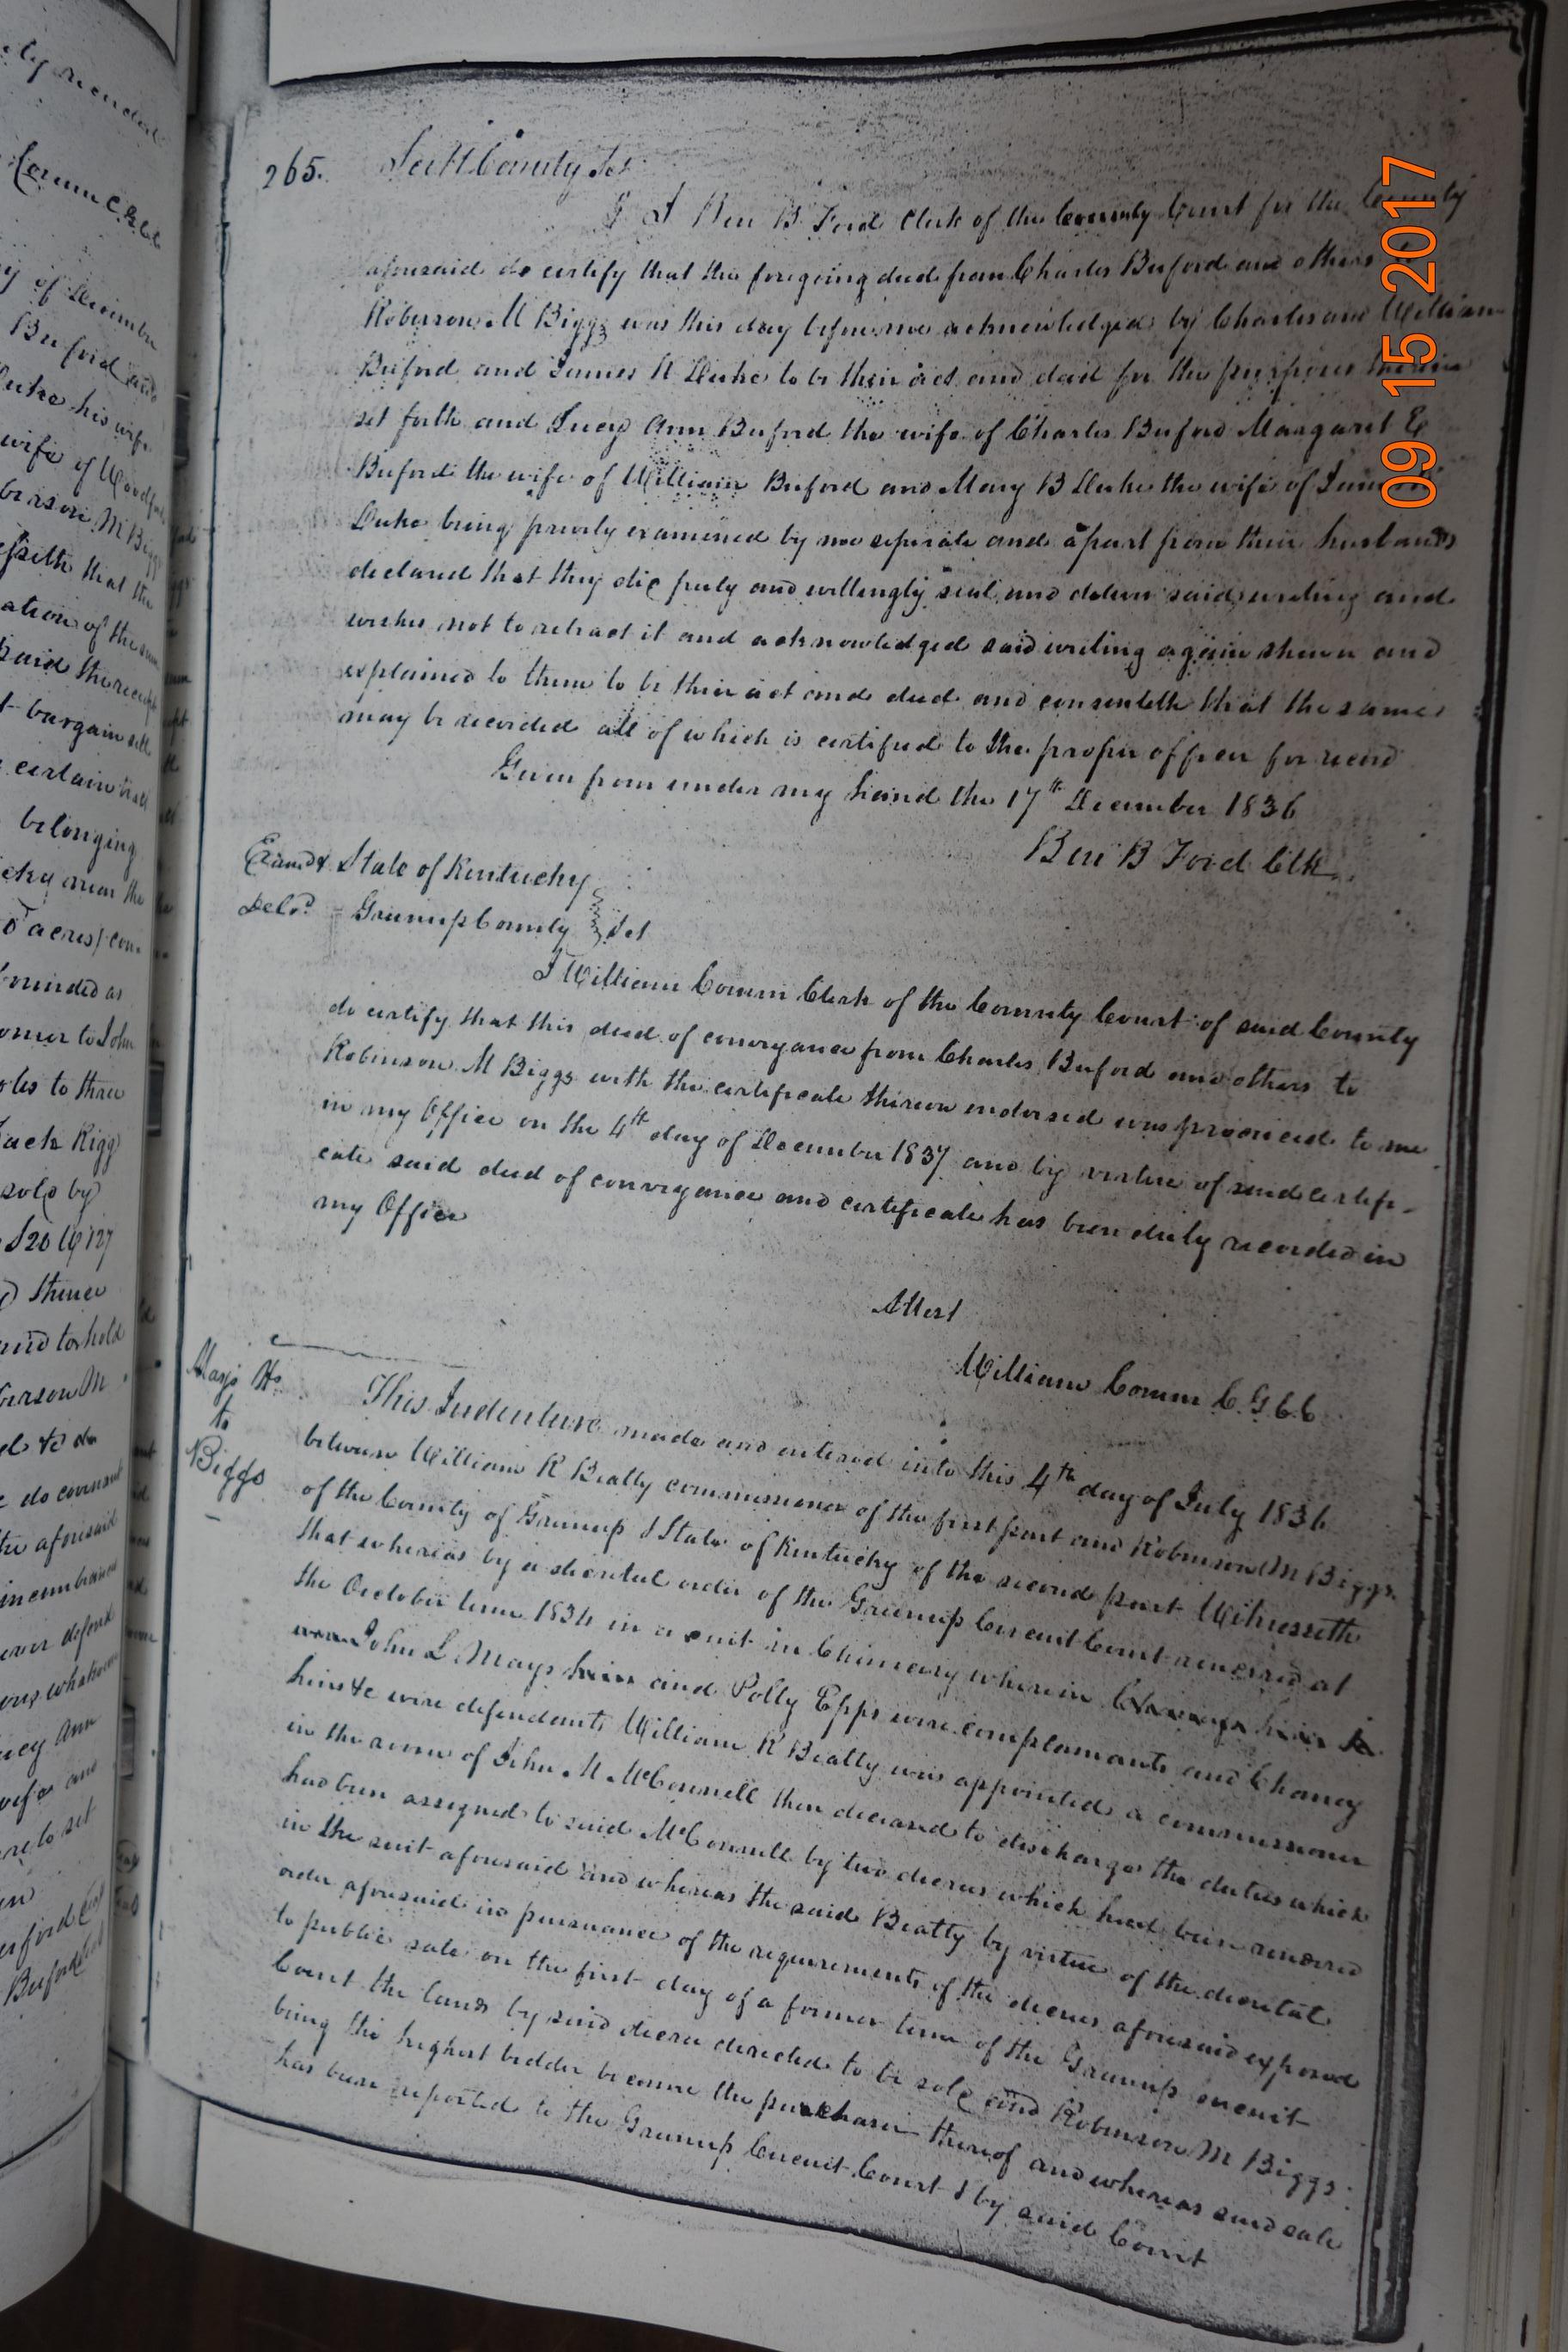 ely recorded
Corum C.G.C.C
y of December
Buford and
Duke his wife
wife of
berson M Biggs
esseth that the
ation of the sum
paid the receipt
t bargain sell
certain tract
belonging
cky near the
acres
bounded as
orner to John
oles to three
Jack Rigg
sold by
S 20 W 127
thence
and to hold
berson M
do covenant
the aforesaid
incumbrances
ever defend
whatever
ucy Ann
wife and
to set
Buford
265.
Scott County Sct
I Ben B Ford Clerk of the County Court for the County
aforesaid do certify that the foregoing deed from Charles Buford and others
Roberson M Biggs was this day before me acknowledged by Charles and William
Buford and James K Duke to be their act and deed for the purposes therein
set forth and Lucy Ann Buford the wife of Charles Buford Margaret E
Buford the wife of William Buford and Mary B Duke the wife of James K
Duke being privily examined by me seperate and apart from their husbands
declared that they did freely and willingly seal and deliver said writing and
wishes not to retract it and acknowledged said writing again shewn and
explained to them to be their act and deed and consenteth that the same
may be recorded all of which is certified to the proper officer for record
Given from under my hand the 17th December 1836
Ben B Ford Clk
Examd & 
Deld.
State of Kentucky
Greenup County Sct
I William Corum Clerk of the County Court of said County
do certify that this deed of conveyance from Charles Buford and others to
Robinson M Biggs with the certificate thereon endorsed was produced to me
in my Office on the 4th day of December 1837 and by virtue of said certifi-
cate said deed of conveyance and certificate has been duly recorded in
my Office
Attest
William Corum C.G.C.C
Mays Hs
to
Biggs
This Indenture made and entered into this 4th day of July 1836
between William R Beatty commissioner of the first part and Robinson M Biggs
of the County of Greenup & State of Kentucky of the second part Witnesseth
that whereas by a decretal order of the Greenup Circuit Court rendered at
the October term 1834 in a suit in Chancery wherein
John L Mays heirs and Polly Epps were complainants and Chaney
heirs &c were defendants William R Beatty was appointed a commissioner
in the room of John M McConnell then deceased to discharge the duties which
had been assigned to said McConnell by two decrees which had been rendered
in the suit aforesaid and whereas the said Beatty by virtue of the decretal
order aforesaid in pursuance of the requirements of the decrees aforesaid exposed
to public sale on the first day of a former term of the Greenup circuit
Court the lands by said decree directed to be sold and Robinson M Biggs
being the highest bidder became the purchaser thereof and whereas said sale
has been reported to the Greenup Circuit Court & by said Court
09 15 2017